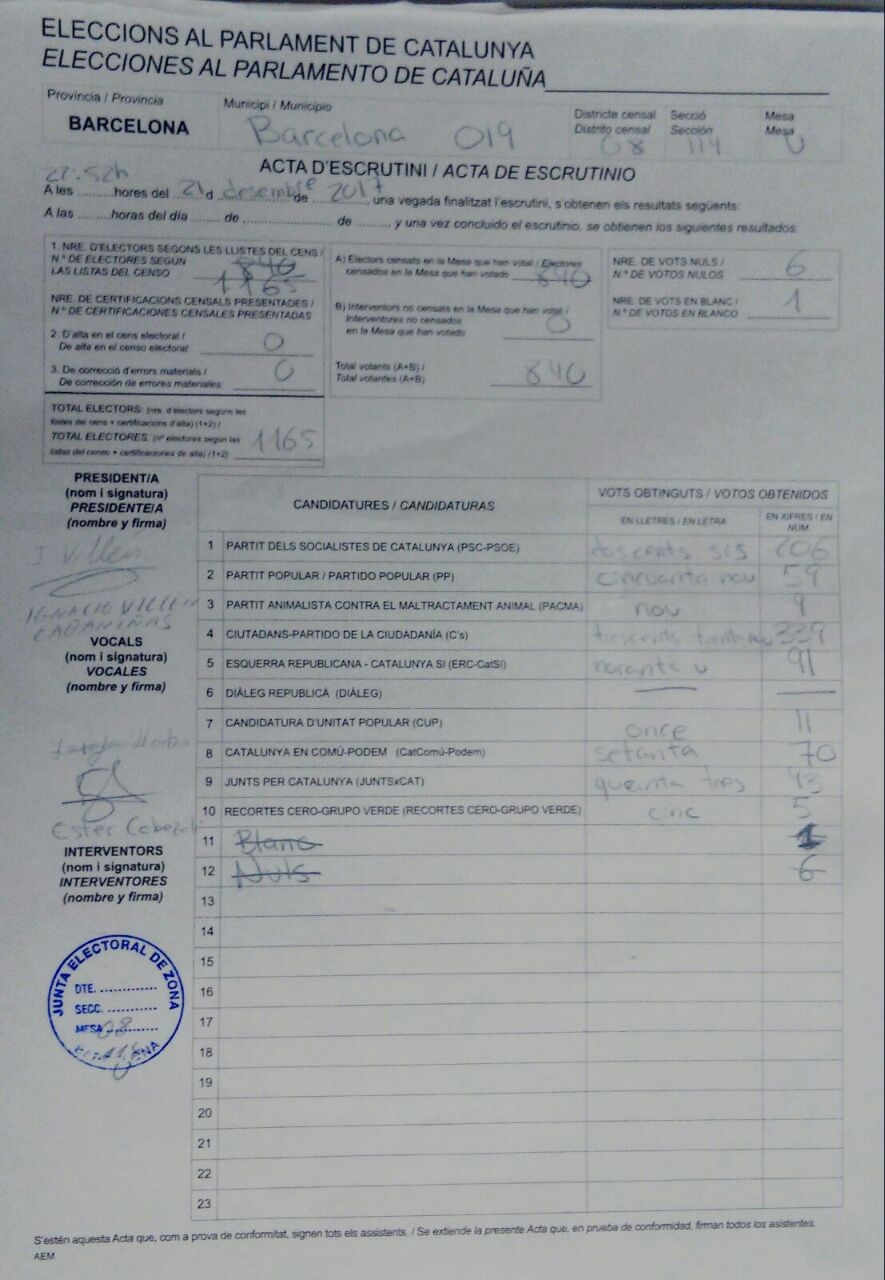 ELECCIONS AL PARLAMENT DE CATALUNYA
ELECCIONES AL PARLAMENTO DE CATALUÑA
Província / Provincia
BARCELONA
Municipi / Municipio
Barcelona 019
Districte censal Secció Mesa
Distrito censal Sección Mesa
08 114 U
ACTA D'ESCRUTINI / ACTA DE ESCRUTINIO
22:52h
A les ......... hores del 21 d desembre de 2017, una vegada finalitzat l'escrutini, s'obtenen els resultats següents:
A las ......... horas del día ........ de ........................ de ......... y una vez concluido el escrutinio, se obtienen los siguientes resultados:
1. NRE. D'ELECTORS SEGONS LES LLISTES DEL CENS /
N.º DE ELECTORES SEGÚN 840
LAS LISTAS DEL CENSO 1165
NRE. DE CERTIFICACIONS CENSALS PRESENTADES /
N.º DE CERTIFICACIONES CENSALES PRESENTADAS
2. D'alta en el cens electoral /
De alta en el censo electoral: 0
3. De correcció d'errors materials /
De corrección de errores materiales: 0
TOTAL ELECTORS: (nre. d'electors segons les
llistes del cens + certificacions d'alta) (1+2) /
TOTAL ELECTORES: (nº electores según las 1165
listas del censo + certificaciones de alta) (1+2)
A) Electors censats en la Mesa que han votat / Electores
censados en la Mesa que han votado 840
B) Interventors no censats en la Mesa que han votat /
Interventores no censados 0
en la Mesa que han votado
Total votants (A+B) /
Total votantes (A+B) 840
NRE. DE VOTS NULS /
N.º DE VOTOS NULOS 6
NRE. DE VOTS EN BLANC /
N.º DE VOTOS EN BLANCO 1
PRESIDENT/A
(nom i signatura)
PRESIDENTE/A
(nombre y firma)
J Villen
IGNACIO VILLEN
CABANIÑAS
VOCALS
(nom i signatura)
VOCALES
(nombre y firma)
Ester
INTERVENTORS
(nom i signatura)
INTERVENTORES
(nombre y firma)
JUNTA ELECTORAL DE ZONA
DTE. ..............
SECC. ............
MESA 08
114
U
CANDIDATURES / CANDIDATURAS
VOTS OBTINGUTS / VOTOS OBTENIDOS
EN LLETRES / EN LETRA
EN XIFRES / EN NÚM
1 PARTIT DELS SOCIALISTES DE CATALUNYA (PSC-PSOE) doscents sis 206
2 PARTIT POPULAR / PARTIDO POPULAR (PP) cincuanta nou 59
3 PARTIT ANIMALISTA CONTRA EL MALTRACTAMENT ANIMAL (PACMA) nou 9
4 CIUTADANS-PARTIDO DE LA CIUDADANÍA (C's) trescents trenta nou 339
5 ESQUERRA REPUBLICANA - CATALUNYA SI (ERC-CatSí) noranta u 91
6 DIÀLEG REPUBLICÀ (DIÀLEG)
7 CANDIDATURA D'UNITAT POPULAR (CUP) once 11
8 CATALUNYA EN COMÚ-PODEM (CatComú-Podem) setanta 70
9 JUNTS PER CATALUNYA (JUNTSxCAT) tres 43
10 RECORTES CERO-GRUPO VERDE (RECORTES CERO-GRUPO VERDE) cinc 5
11 Blanc 1
12 Nuls 6
13
14
15
16
17
18
19
20
21
22
23
S'estén aquesta Acta que, com a prova de conformitat, signen tots els assistents. / Se extiende la presente Acta que, en prueba de conformidad, firman todos los asistentes.
AEM